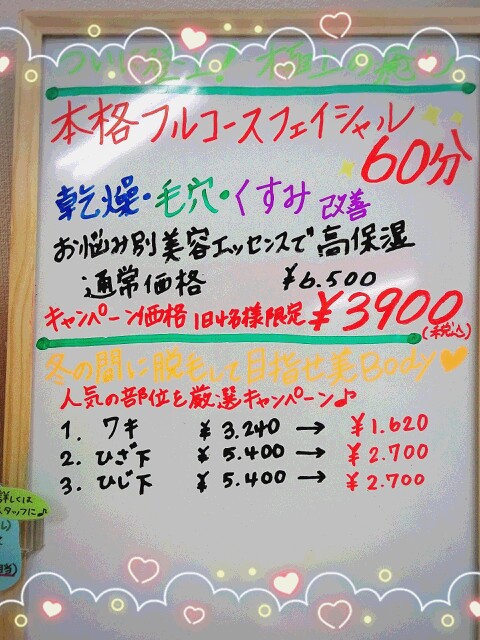 ついに登場! 極上の癒し
本格フルコースフェイシャル
60分
乾燥・毛穴・くすみ 改善
お悩み別美容エッセンスで高保湿
通常価格 ¥6.500
キャンペーン価格 1日4名様限定 ¥3900
(税込)
冬の間に脱毛して目指せ美Body
人気の部位を厳選キャンペーン♪
1. ワキ ¥3.240 → ¥1.620
2. ひざ下 ¥5.400 → ¥2.700
3. ひじ下 ¥5.400 → ¥2.700
詳しくは
スタッフに♪